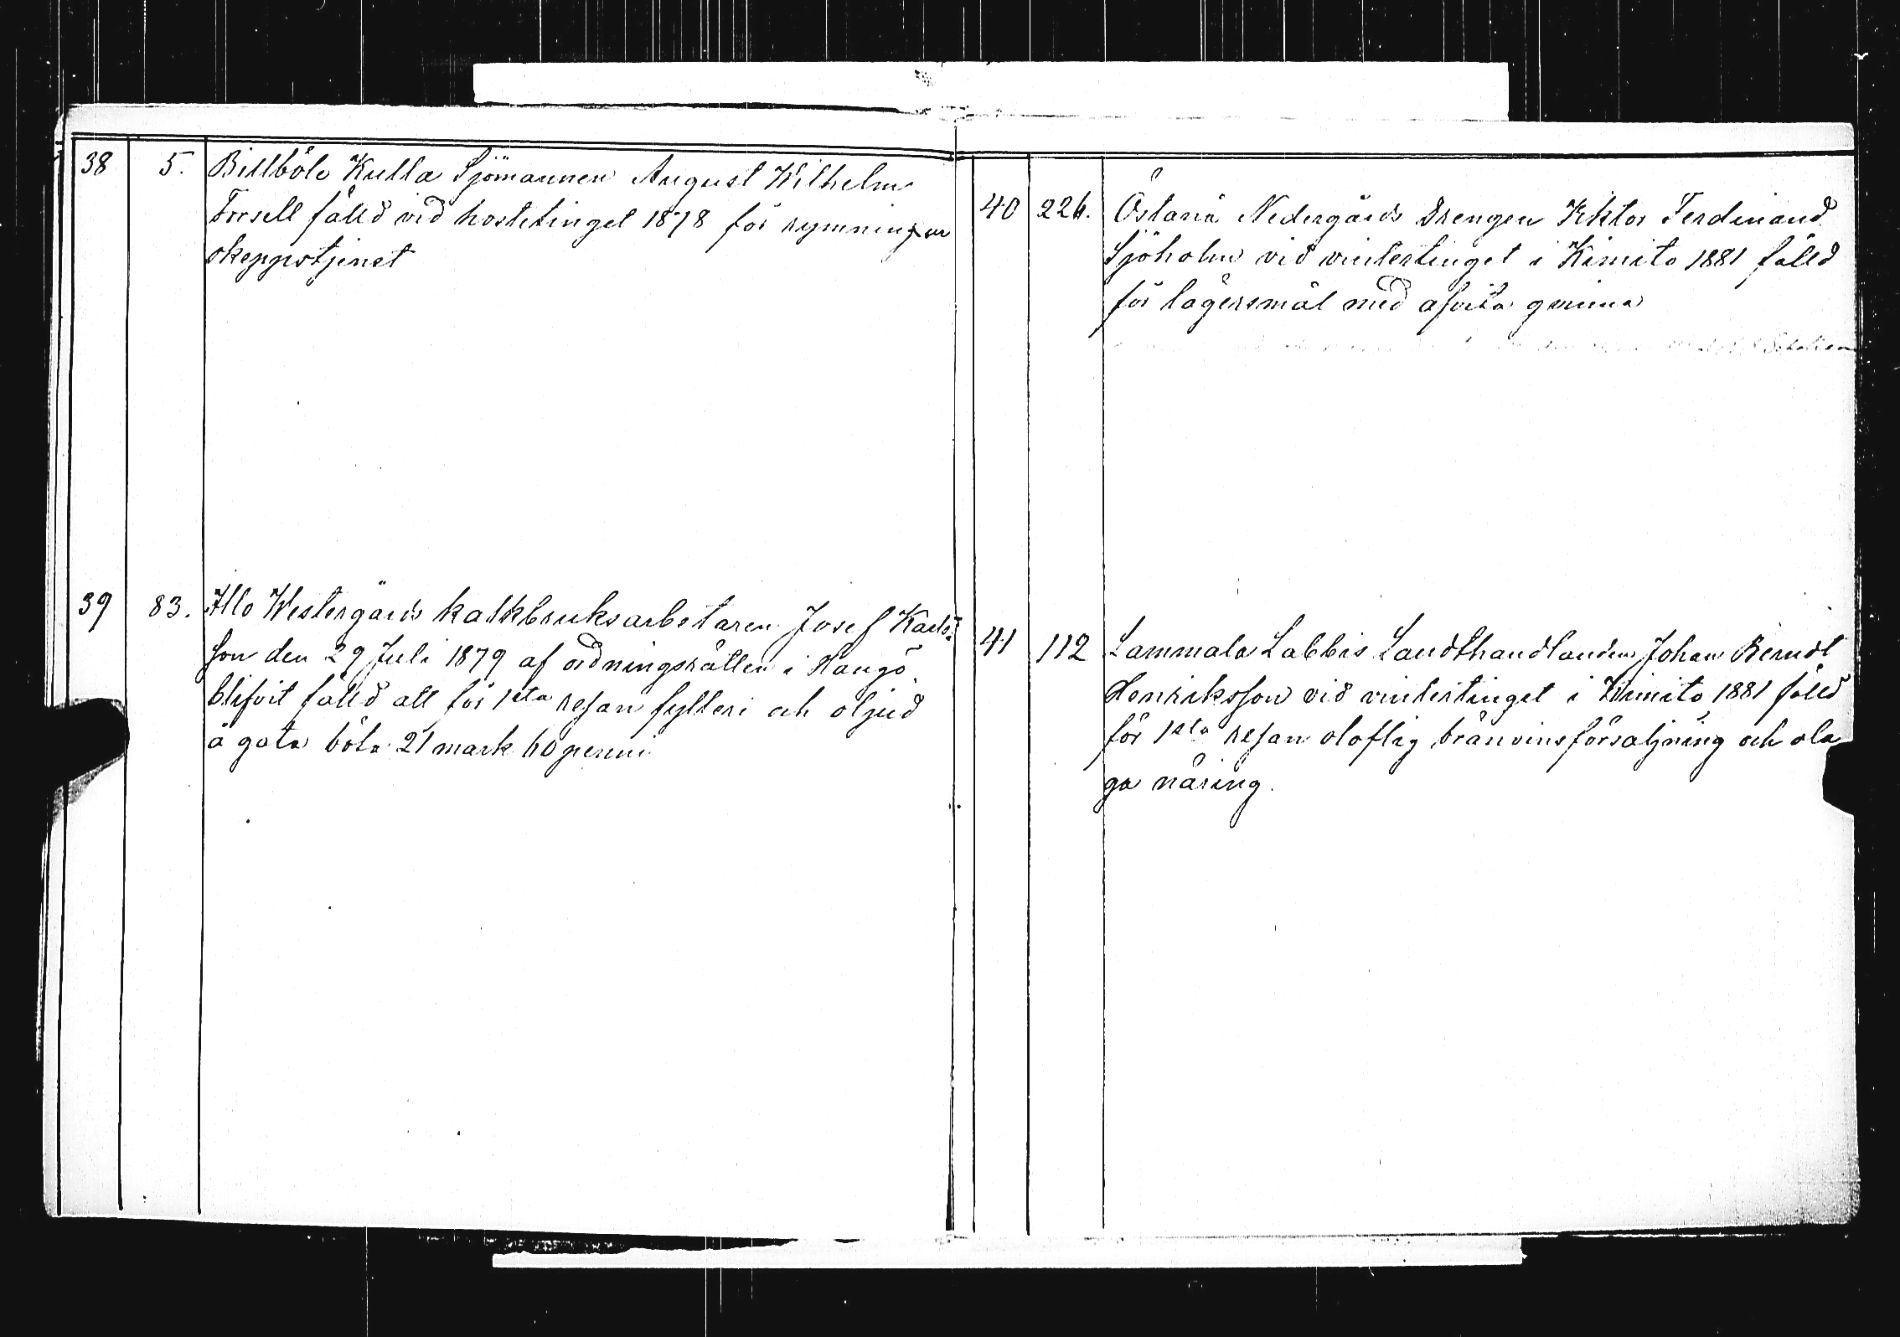 38 5. Billböle Kulla Sjömannen August Wilhelm
Forsell fälld vid hösttinget 1878 för rymning ur
skeppstjenst
39 83. Illo Westergårds kalkbruksarbetaren Josef Karls=
son den 29 Juli 1879 af ordningsrätten i Hangö
blifvit fälld att för 1sta resan fylleri och oljud
å gata böta 21 mark 60 penni
40 226. Östanå Nedergårds Drengen Viktor Ferdinand
Sjöholm vid vintertinget i Kimito 1881 fälld
för lägersmål med afvita qvinna
41 112 Lammala Labbis Landthandlanden Johan Berndt
Henriksson vid vintertinget i Kimito 1881 fälld
för 1sta resan oloflig bränvinsförsäljning och ola
ga näring.